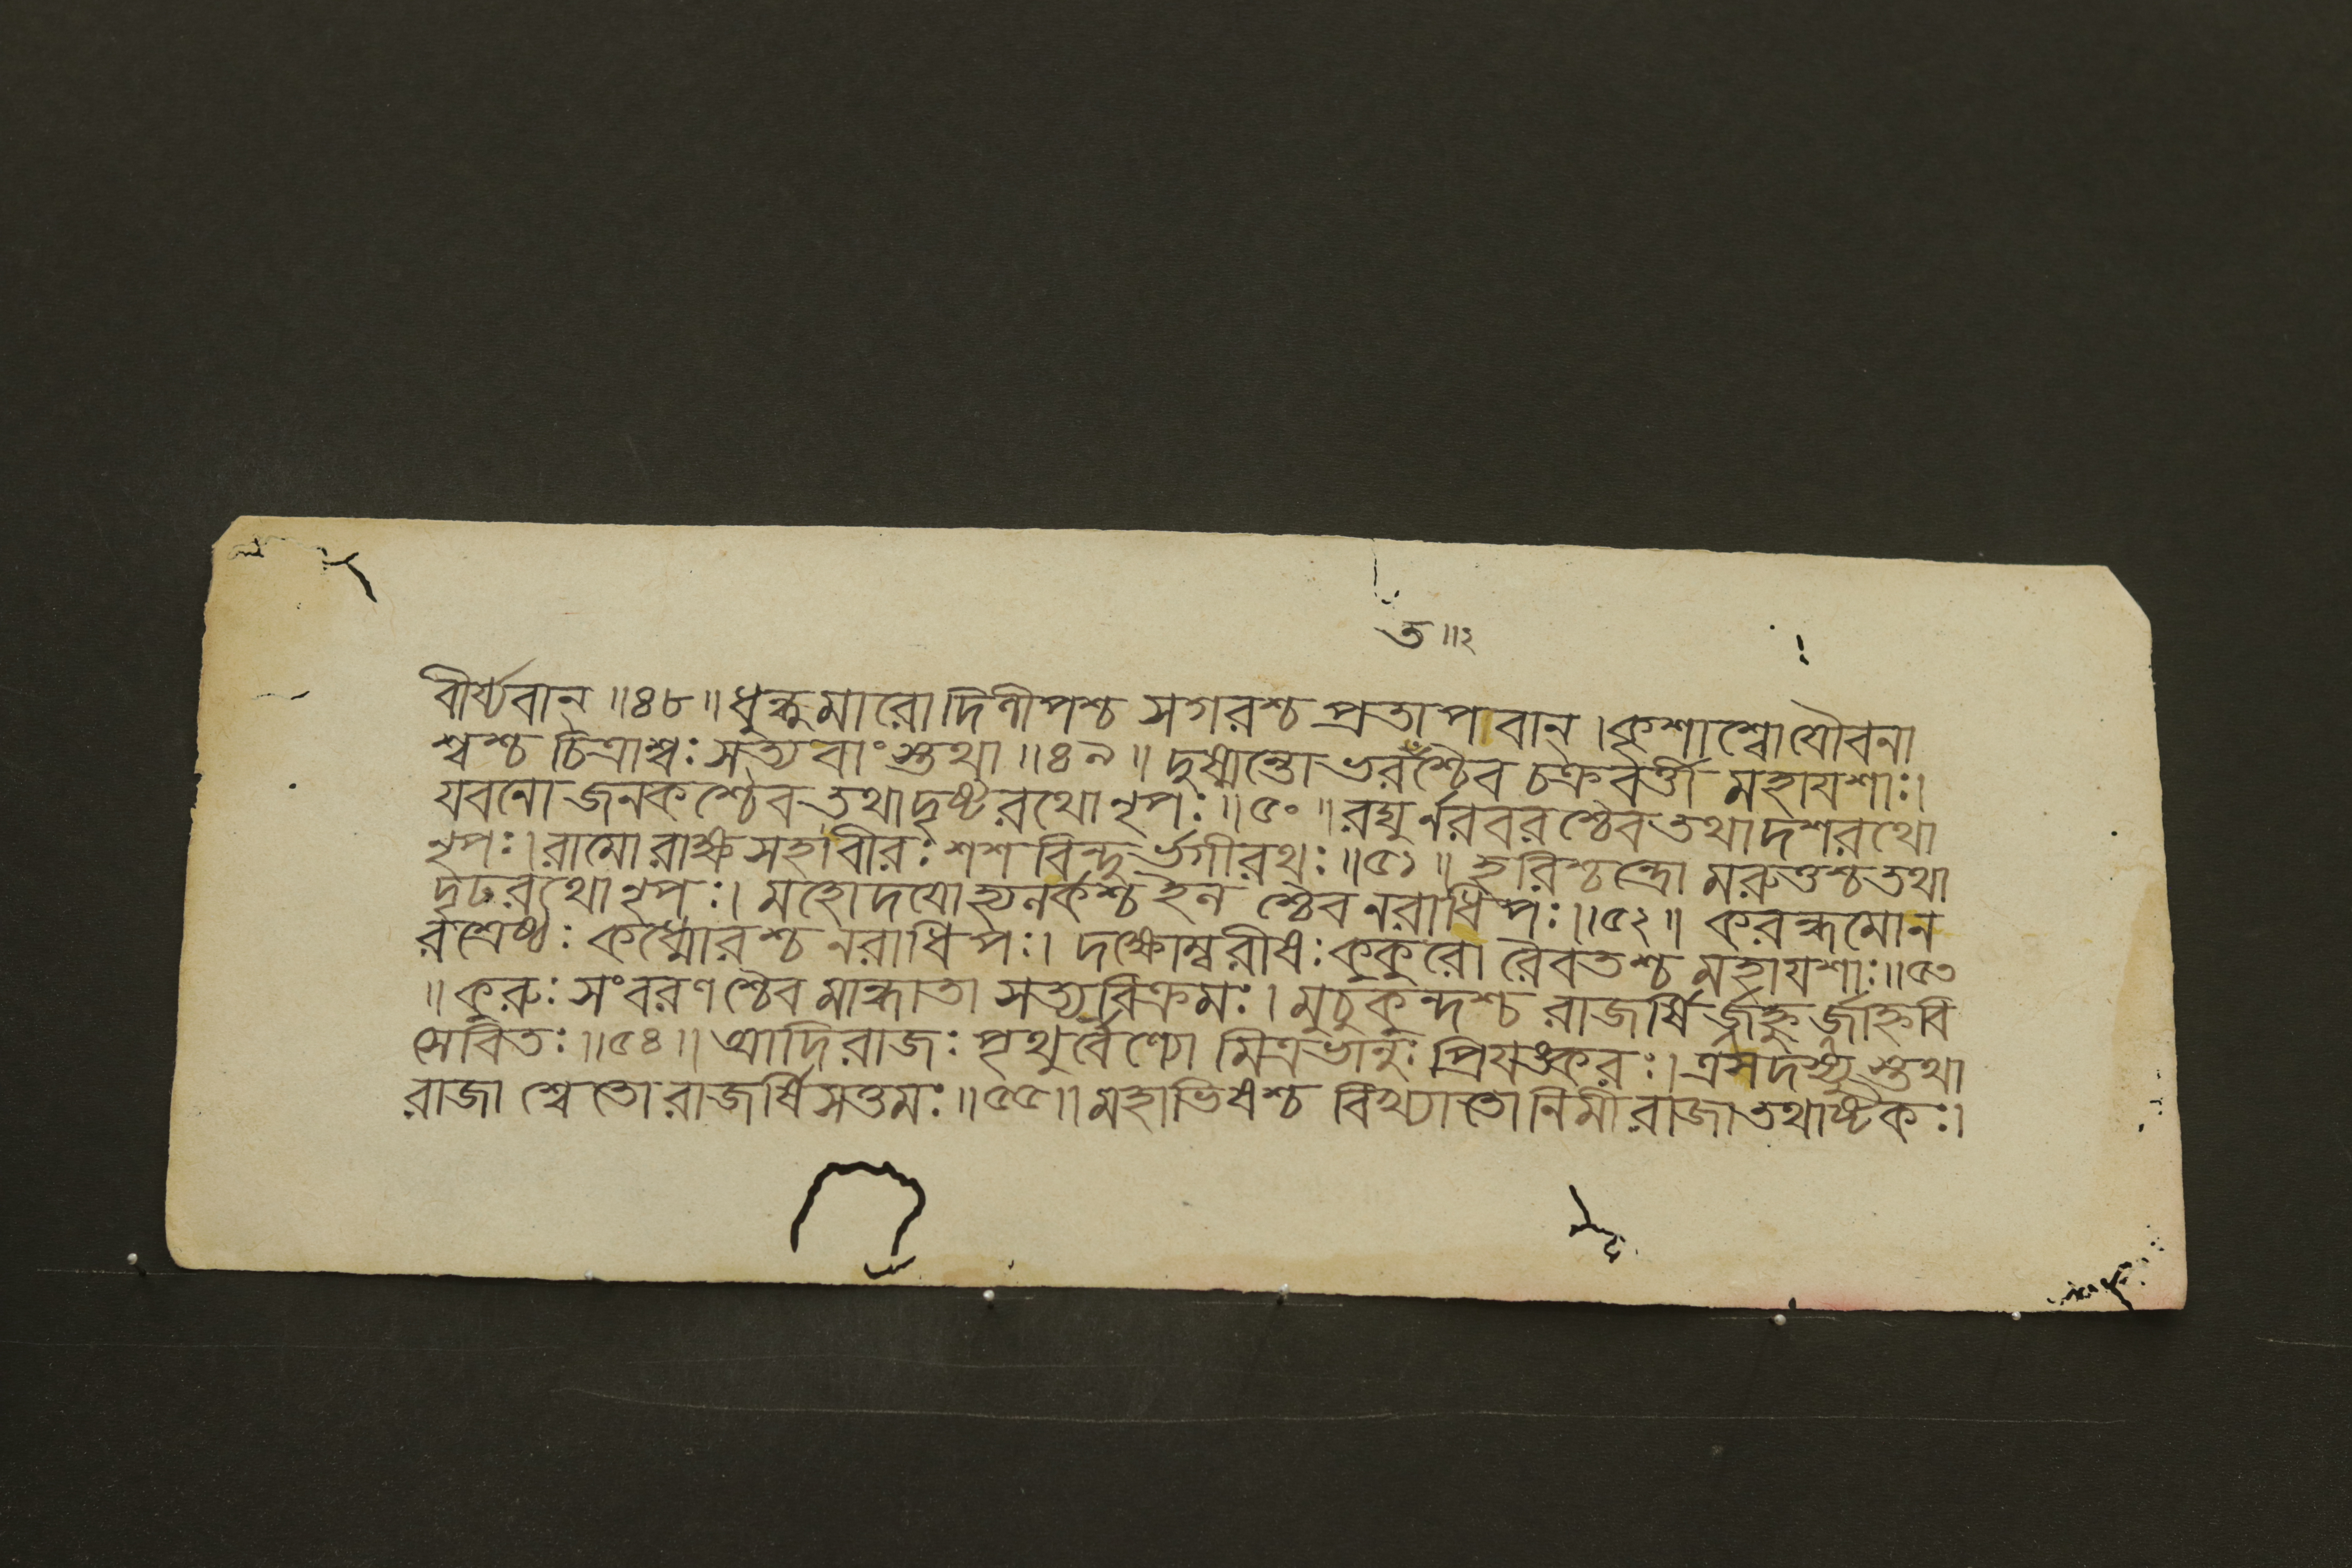 ত॥২
বীর্য্যবান্॥৪৮॥ধুন্ধুমারোদিলীপশ্চ সগরশ্চ প্রতাপাবান্।কৃশাশ্বোযৌবনা
শ্বশ্চ চিত্রাশ্বঃসত্যবাংস্তথা॥৪৯॥ দুষ্মন্তোভরতঁশ্চৈব চক্রবর্ত্তী মহাযশাঃ।
যবনো জনকশ্চৈবতথাদৃষ্টরথোনৃপঃ॥৫০॥রঘুর্নরবরশ্চৈবতথাদশরথো
নৃপঃ।রামোরাঞ্চসহাবীরঃশশবিন্দুর্ভগীরথঃ॥৫১॥ হরিশ্চন্দ্রো মরুত্তশ্চতথা
দৃঢরথোনৃপঃ। মহোদযোহ্যনর্কশ্চহৈন শ্চৈবনরাধিপঃ॥৫২॥ করন্ধমোন
রশ্রেষ্ঠঃ কর্ধ্মোরশ্চ নরাধিপঃ। দক্ষোম্বরীষঃকুকুরো রৈবতশ্চ মহাযশাঃ॥৫৩
॥কুরুঃসংবরণশ্চৈব মান্ধাতা সত্যবিক্রমঃ। মুচুকুন্দশ্চ রাজর্ষির্জহ্নুর্জাহ্নবি
সেবিতঃ॥৫৪॥আদিরাজঃপৃথুর্বৈণ্যো মিত্রভানুঃপ্রিযঙ্করঃ।ত্রসদস্যুস্তথা
রাজা শ্বেতোরাজর্ষিসত্তমঃ॥৫৫॥মহাভিষশ্চ বিখ্যাতোনিমীরাজাতথাষ্টকঃ।